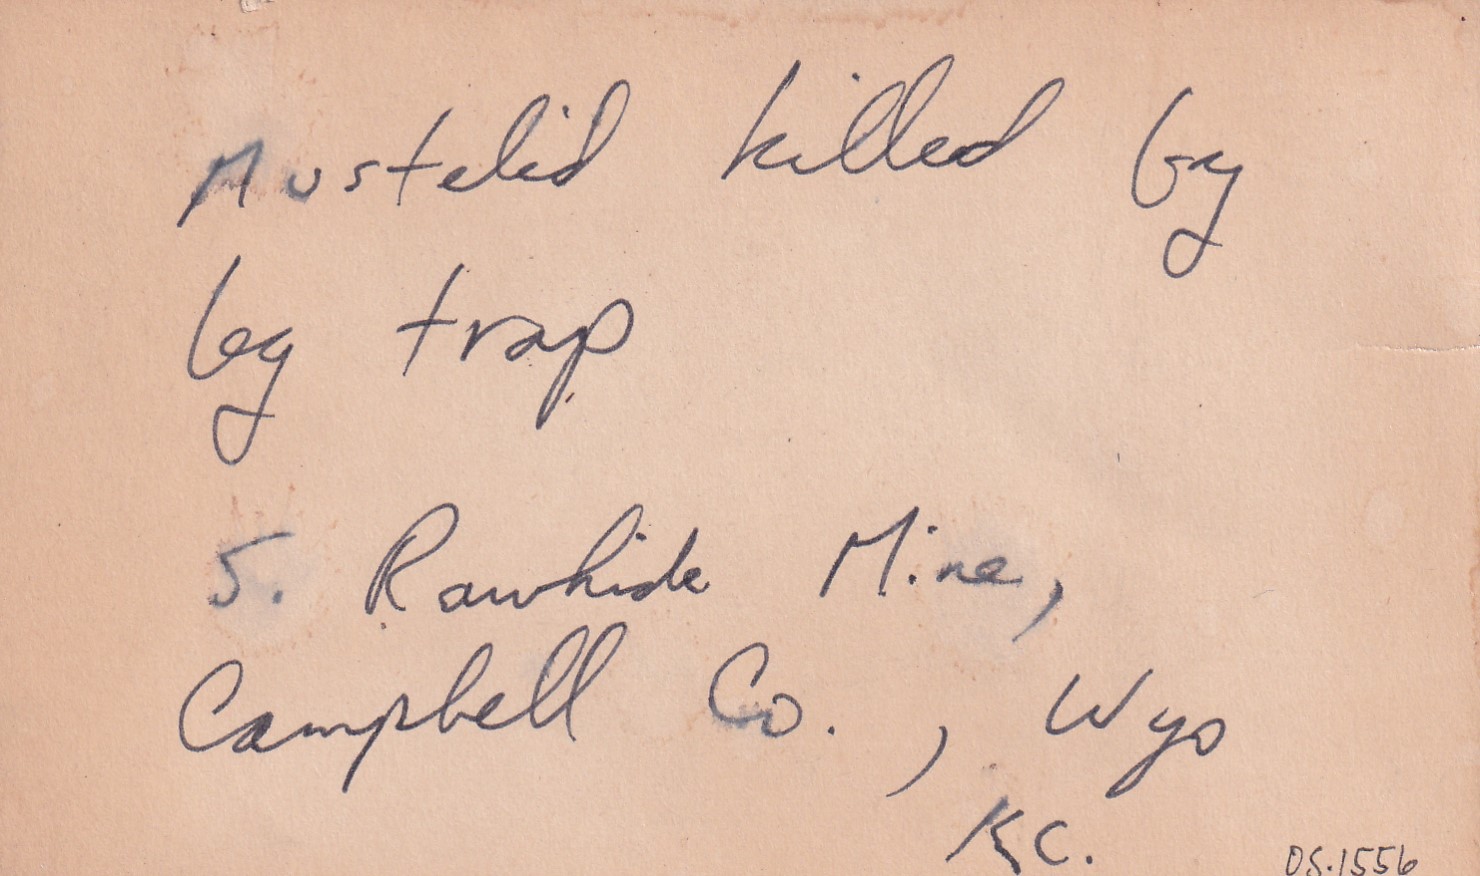 Mustelid killed by
by trap
S. Rawhide Mine,
Campbell Co., Wyo
KC.
DS.1556